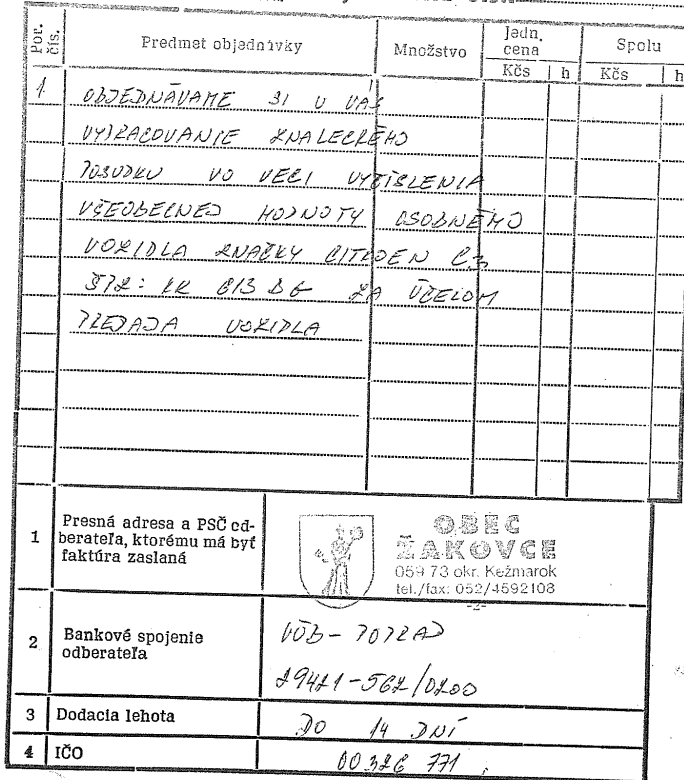 Por. čís.
Predmet objednávky
Množstvo
Jedn. cena
Spolu
Kčs h Kčs h
1.
OBJEDNÁVAME SI U VÁS
VYPRACOVANIE ZNALECKÉHO
POSUDKU VO VECI VYČÍSLENIA
VŠEOBECNEJ HODNOTY OSOBNÉHO
VOZIDLA ZNAČKY CITROEN C3
ŠPZ: KK 613 BG ZA ÚČELOM
PREDAJA VOZIDLA
1
Presná adresa a PSČ od-
berateľa, ktorému má byť
faktúra zaslaná
OBEC
ŽAKOVCE
059 73 okr. Kežmarok
tel./fax: 052/4592108
-2-
2
Bankové spojenie
odberateľa
VÚB - POPRAD
29421-562/0200
3 Dodacia lehota
DO 14 DNÍ
4 IČO
00326 771